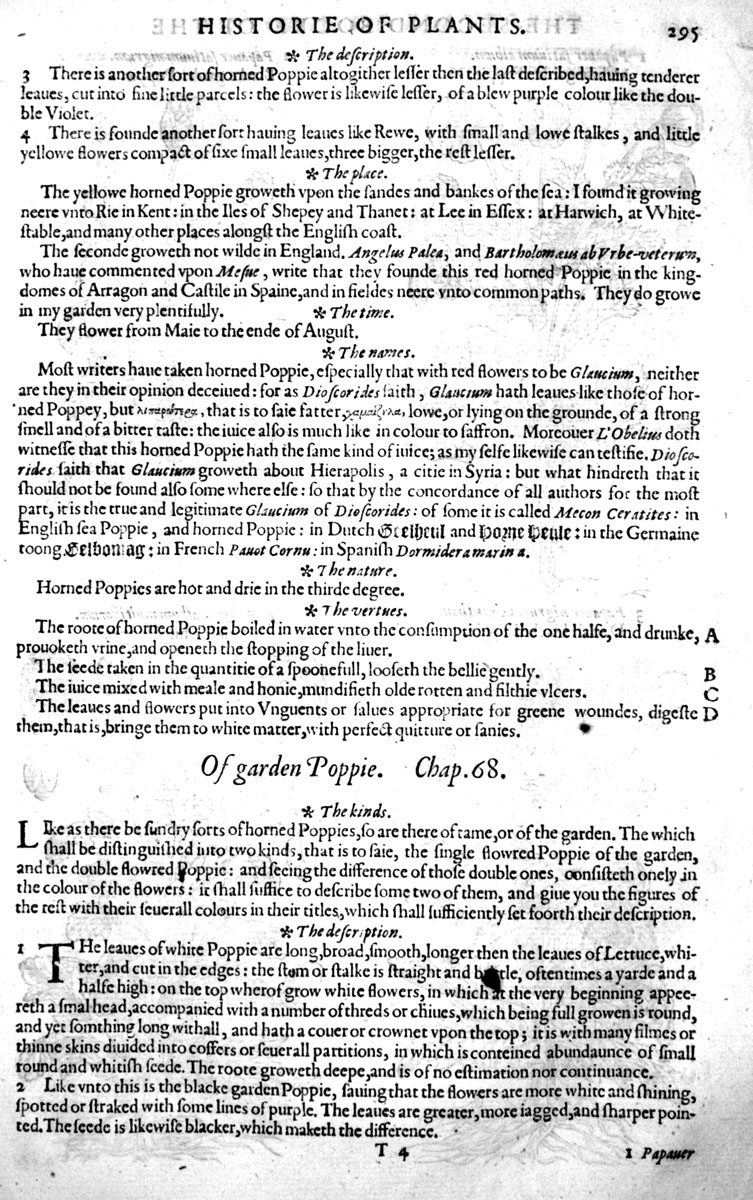 HISTORIE OF PLANTS. 295
❉ The deſcription.
3 There is another ſort of horned Poppie altogither leſſer then the laſt deſcribed, hauing tenderer
leaues, cut into fine little parcels: the flower is likewiſe leſſer, of a blew purple colour like the dou-
ble Violet.
4 There is founde another ſort hauing leaues like Rewe, with ſmall and lowe ſtalkes, and little
yellowe flowers compact of ſixe ſmall leaues, three bigger, the reſt leſſer.
❉ The place.
The yellowe horned Poppie groweth vpon the ſandes and bankes of the ſea: I found it growing
neere vnto Rie in Kent: in the Iles of Shepey and Thanet: at Lee in Eſſex: at Harwich, at White-
ſtable, and many other places alongſt the Engliſh coaſt.
The ſeconde groweth not wilde in England. Angelus Palea, and Bartholomæus ab Vrbe-veterum,
who haue commented vpon Meſue, write that they founde this red horned Poppie in the king-
domes of Arragon and Caſtile in Spaine, and in fieldes neere vnto common paths. They do growe
in my garden very plentifully. ❉ The time.
They flower from Maie to the ende of Auguſt.
❉ The names.
Moſt writers haue taken horned Poppie, eſpecially that with red flowers to be Glaucium, neither
are they in their opinion deceiued: for as Dioſcorides ſaith, Glaucium hath leaues like thoſe of hor-
ned Poppey, but λιπαρώτερα, that is to ſaie fatter, χαμαίζηλα, lowe, or lying on the grounde, of a ſtrong
ſmell and of a bitter taſte: the iuice alſo is much like in colour to ſaffron. Moreouer L'Obelius doth
witneſſe that this horned Poppie hath the ſame kind of iuice; as my ſelfe likewiſe can teſtifie. Dioſco-
rides ſaith that Glaucium groweth about Hierapolis, a citie in Syria: but what hindreth that it
ſhould not be found alſo ſome where elſe: ſo that by the concordance of all authors for the moſt
part, it is the true and legitimate Glaucium of Dioſcorides: of ſome it is called Mecon Ceratites: in
Engliſh ſea Poppie, and horned Poppie: in Dutch and Horne Heule: in the Germaine
toong in French Pauot Cornu: in Spaniſh Dormidera marina.
❉ The nature.
Horned Poppies are hot and drie in the thirde degree.
❉ The vertues.
The roote of horned Poppie boiled in water vnto the conſumption of the one halfe, and drunke, A
prouoketh vrine, and openeth the ſtopping of the liuer.
The ſeede taken in the quantitie of a ſpoonefull, looſeth the bellie gently. B
The iuice mixed with meale and honie, mundifieth olde rotten and filthie vlcers. C
The leaues and flowers put into Vnguents or ſalues appropriate for greene woundes, digeſte D
them, that is, bringe them to white matter, with perfect quitture or ſanies.
Of garden Poppie. Chap. 68.
❉ The kinds.
LIke as there be ſundry ſorts of horned Poppies, ſo are there of tame, or of the garden. The which
ſhall be diſtinguiſhed into two kinds, that is to ſaie, the ſingle flowred Poppie of the garden,
and the double flowred Poppie: and ſeeing the difference of thoſe double ones, conſiſteth onely in
the colour of the flowers: it ſhall ſuffice to deſcribe ſome two of them, and giue you the figures of
the reſt with their ſeuerall colours in their titles, which ſhall ſufficiently ſet foorth their deſcription.
❉ The deſcription.
1 THe leaues of white Poppie are long, broad, ſmooth, longer then the leaues of Lettuce, whi-
ter, and cut in the edges: the ſtem or ſtalke is ſtraight and brittle, oftentimes a yarde and a
halfe high: on the top wherof grow white flowers, in which at the very beginning appee-
reth a ſmal head, accompanied with a number of threds or chiues, which being full growen is round,
and yet ſomthing long withall, and hath a couer or crownet vpon the top; it is with many filmes or
thinne skins diuided into coffers or ſeuerall partitions, in which is conteined abundaunce of ſmall
round and whitiſh ſeede. The roote groweth deepe, and is of no eſtimation nor continuance.
2 Like vnto this is the blacke garden Poppie, ſauing that the flowers are more white and ſhining,
ſpotted or ſtraked with ſome lines of purple. The leaues are greater, more iagged, and ſharper poin-
ted. The ſeede is likewiſe blacker, which maketh the difference.
T 4 1 Papauer